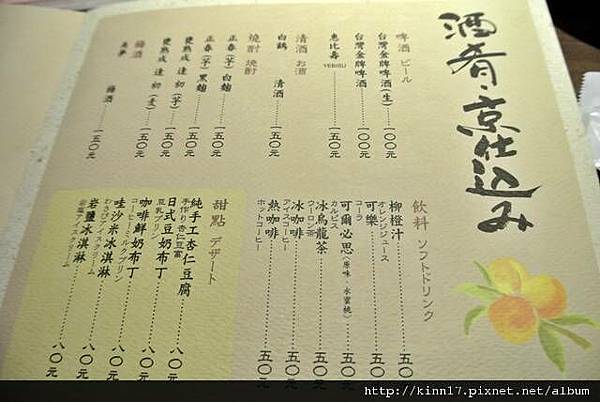 酒肴・京仕込み
啤酒 ビール
台灣金牌啤酒(生)……一〇〇元
台灣金牌啤酒……一〇〇元
惠比壽……一五〇元
YEBISU
清酒 お酒
白鶴 清酒……一五〇元
燒酎 焼酎
正春(芋)白麹……一五〇元
正春(芋)黑麹……一五〇元
甕熟成 達初(芋)……一五〇元
甕熟成 達初(麦)……一五〇元
梅酒
梅酒……一五〇元
飲料 ソフトドリンク
柳橙汁……五〇
オレンジジュース
可樂……五〇元
コーラ
可爾必思(原味・水蜜桃)……五〇元
カルピス
冰烏龍茶……五〇元
ウーロン茶
冰咖啡……五〇元
アイスコーヒー
熱咖啡……五〇元
ホットコーヒー
甜點 デザート
純手工杏仁豆腐……八〇元
手作り杏仁豆富
日式豆奶布丁……八〇元
豆乳プリン
咖啡鮮奶布丁……八〇元
コーヒーミルクプリン
哇沙米冰淇淋……八〇元
わさびアイスクリーム
岩鹽冰淇淋……八〇元
岩塩アイスクリーム
http://kinn17.pixnet.net/album